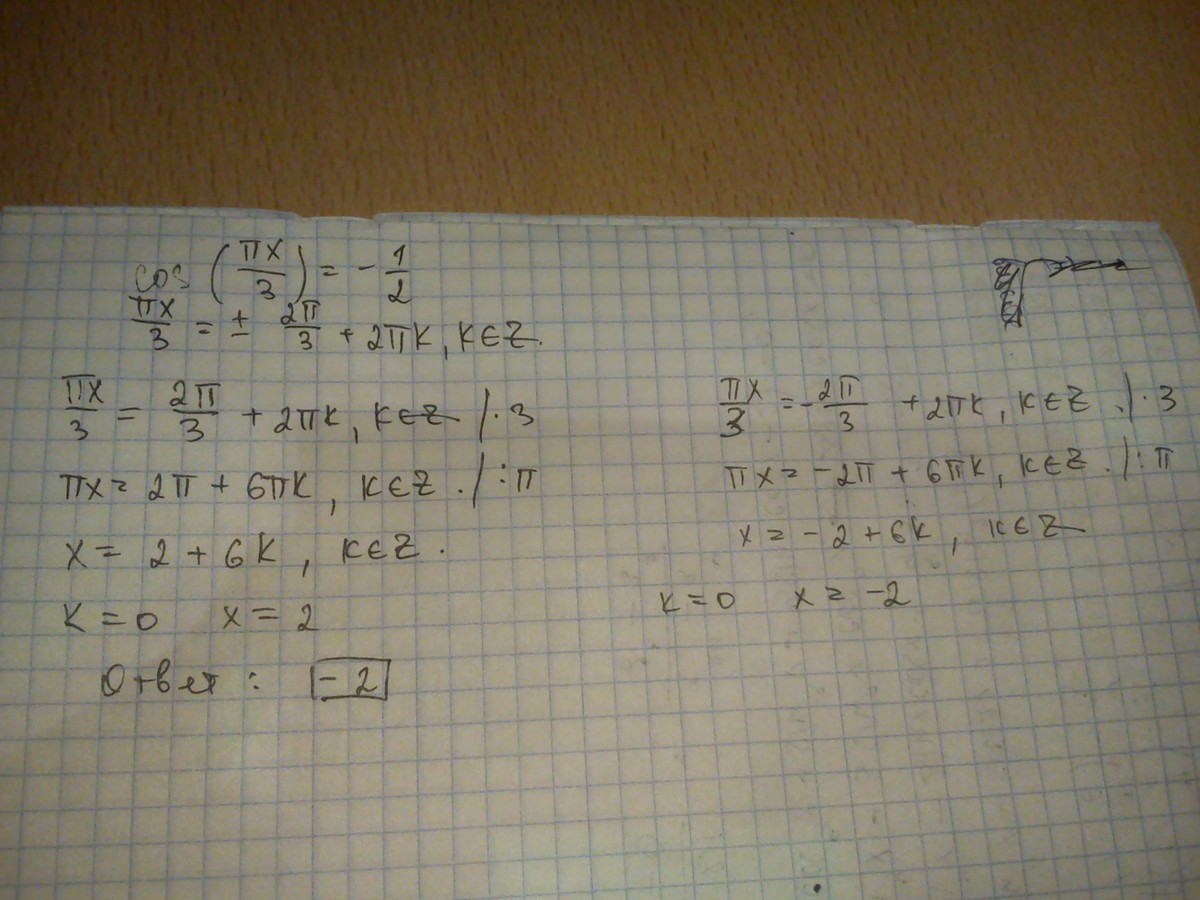 cos (πx/3) = - 1/2
πx/3 = ± 2π/3 + 2πk, k∈Z.
πx/3 = 2π/3 + 2πk, k∈Z /·3
πx = 2π + 6πk, k∈Z. /:π
x = 2 + 6k, k∈Z.
k=0 x = 2
πx/3 = -2π/3 + 2πk, k∈Z. /·3
πx = -2π + 6πk, k∈Z. /:π
x = -2 + 6k, k∈Z
k=0 x = -2
Ответ: -2